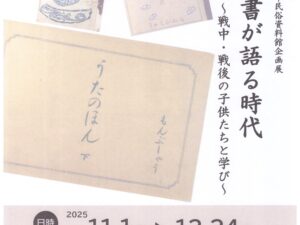 民俗資料館企画展
書が語る時代
～戦中・戦後の子供たちと学び～
もんぶしゃう
うたのほん 下
日時
2025
11.1
12.24